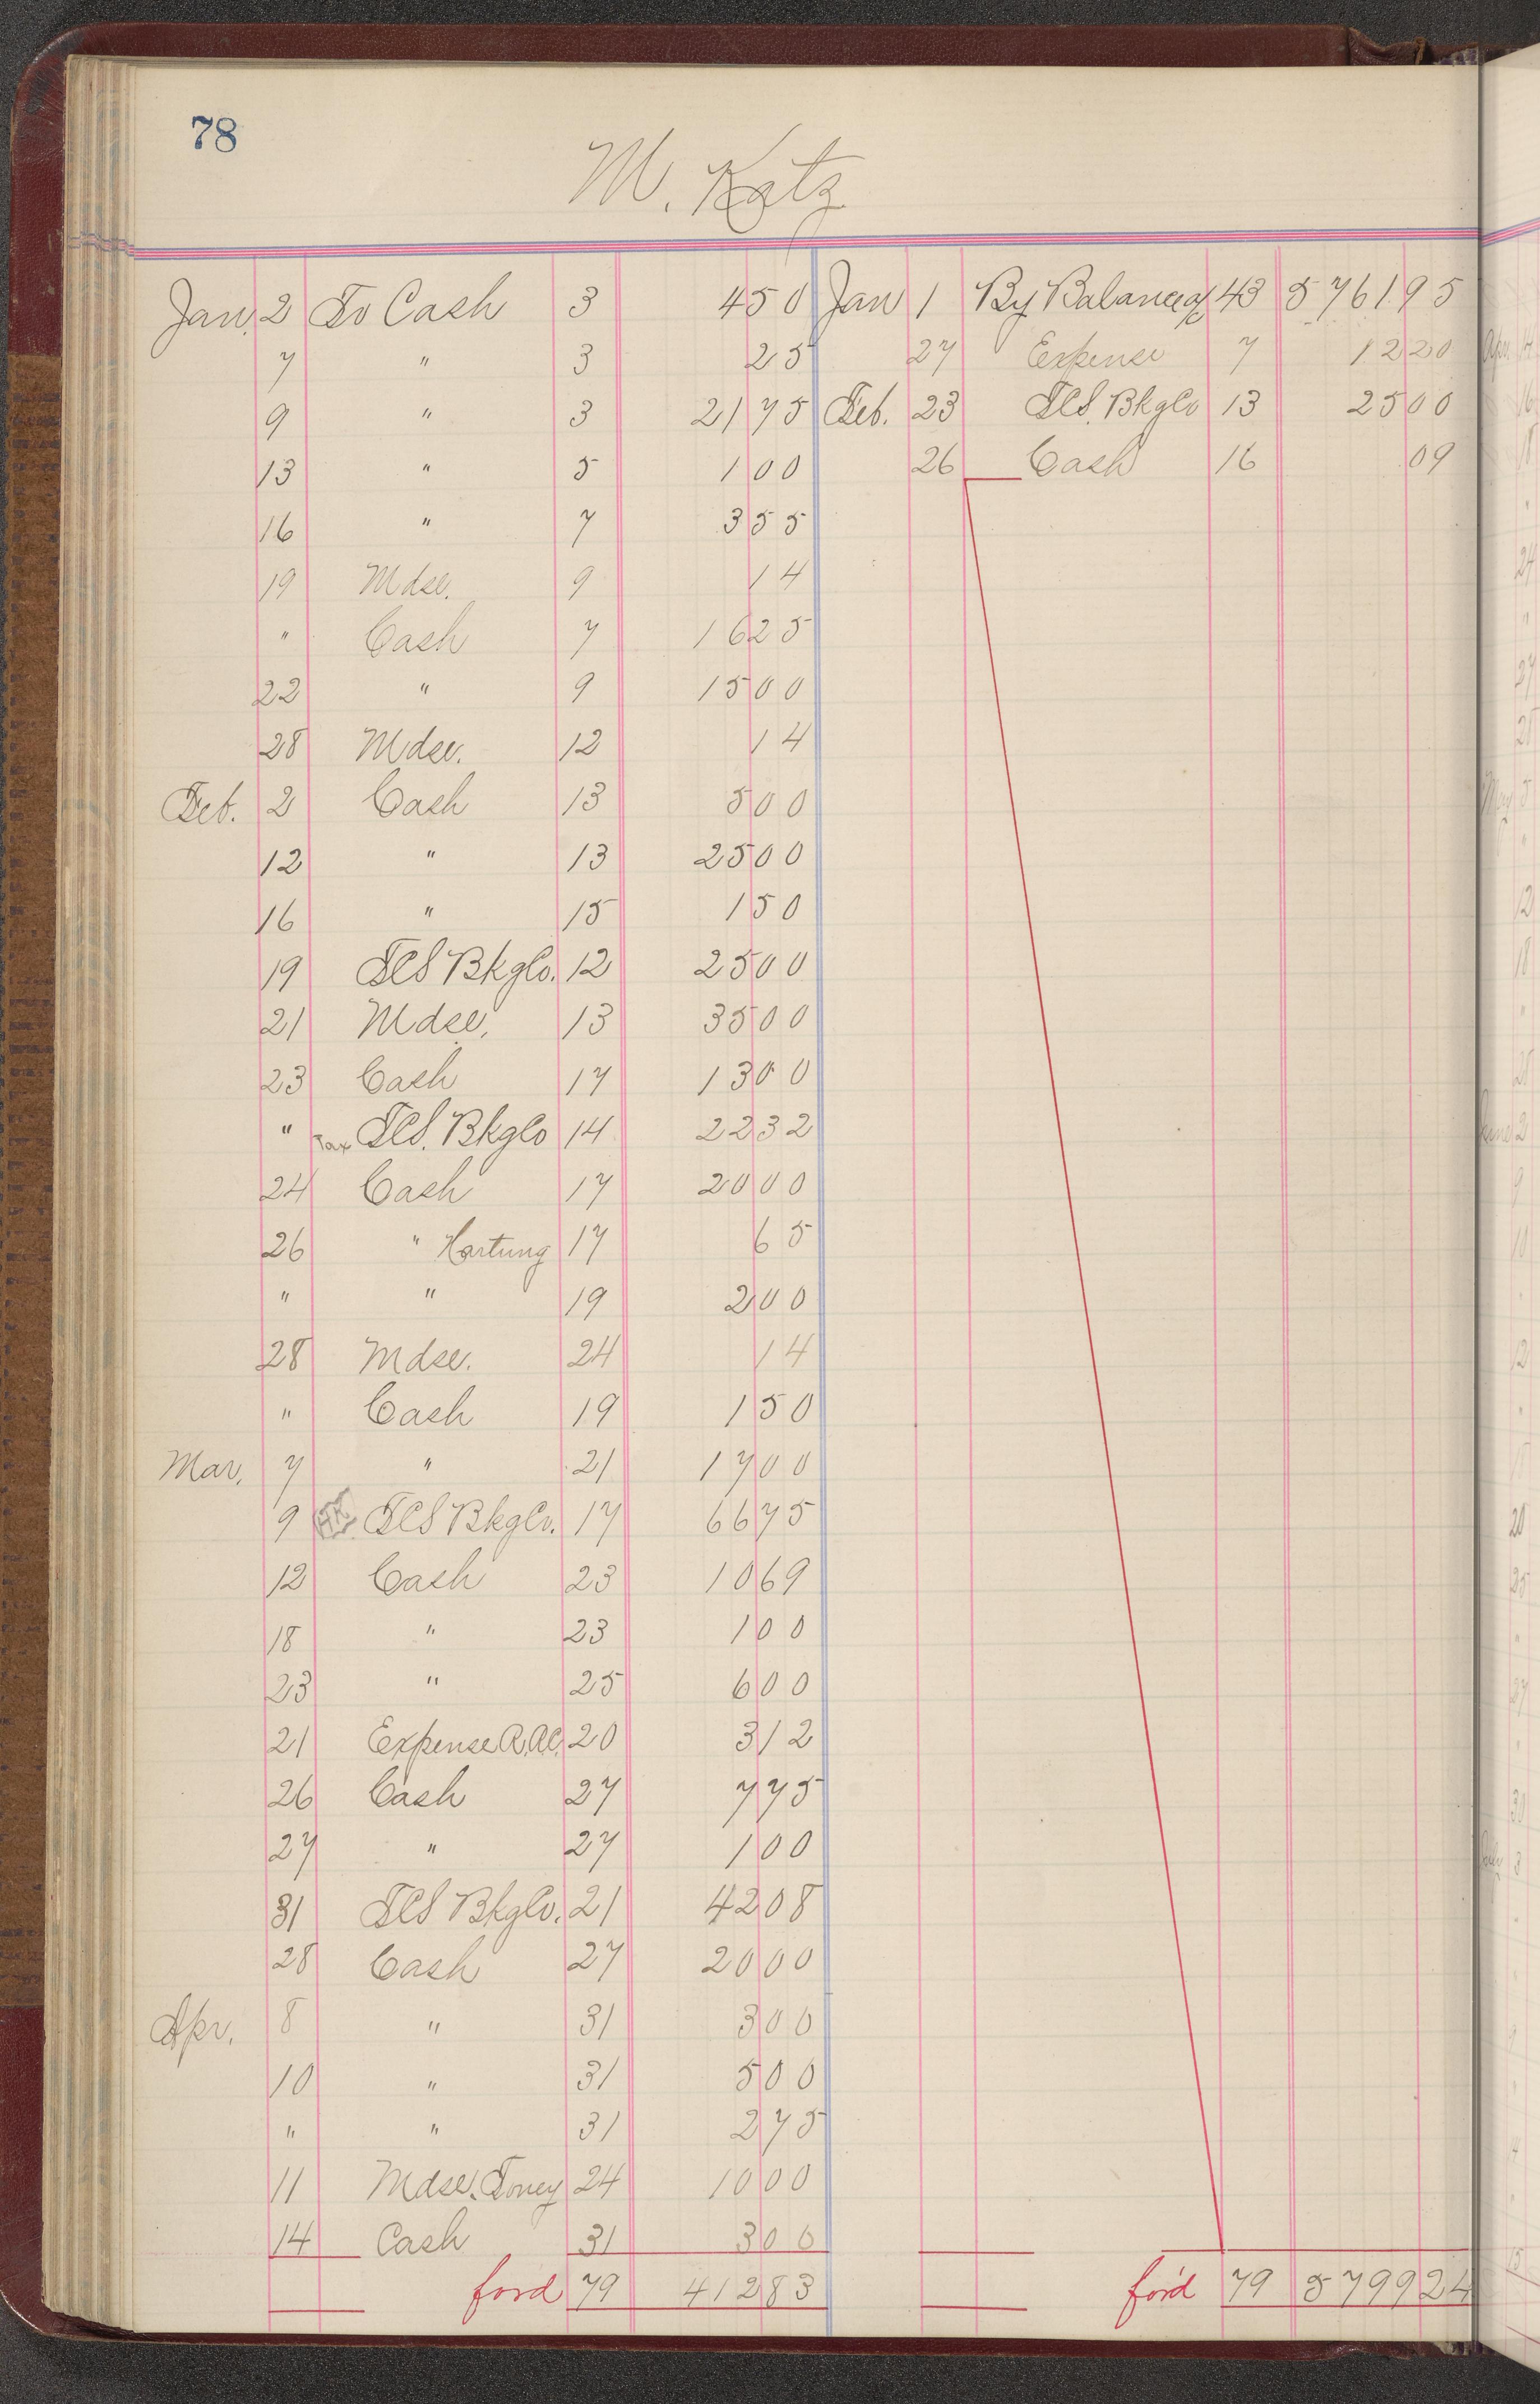 78
M. Katz
Jan. 2 To Cash 3 4 50
7 " 3 25
9 " 3 21 75
13 " 5 1 00
16 " 7 3 55
19 Mdse. 9 14
" Cash 7 16 25
22 " 9 15 00
28 Mdse. 12 14
Feb. 2 Cash 13 5 00
12 " 13 25 00
16 " 15 1 50
19 TCS BkgCo. 12 25 00
21 Mdse. 13 35 00
23 Cash 17 13 00
" Tax TCS. BkgCo 14 22 32
24 Cash 17 20 00
26 " Hartung 17 65
" " 19 2 00
28 Mdse. 24 14
" Cash 19 1 50
Mar. 7 " 21 17 00
9 TCS BkgCo. 17 66 75
12 Cash 23 10 69
18 " 23 1 00
23 " 25 6 00
21 Expense R.A.C. 20 3 12
26 Cash 27 7 75
27 " 27 1 00
31 TCS BkgCo. 21 42 08
28 Cash 27 20 00
Apr. 8 " 31 3 00
10 " 31 5 00
" " 31 2 75
11 Mdse. Toney 24 10 00
14 Cash 31 3 00
ford 79 412 83
Jan 1 By Balance a/c 43 5761 95
27 Expense 7 12 20
Feb. 23 TCS. BkgCo 13 25 00
26 Cash 16 09
for'd 79 5799 24